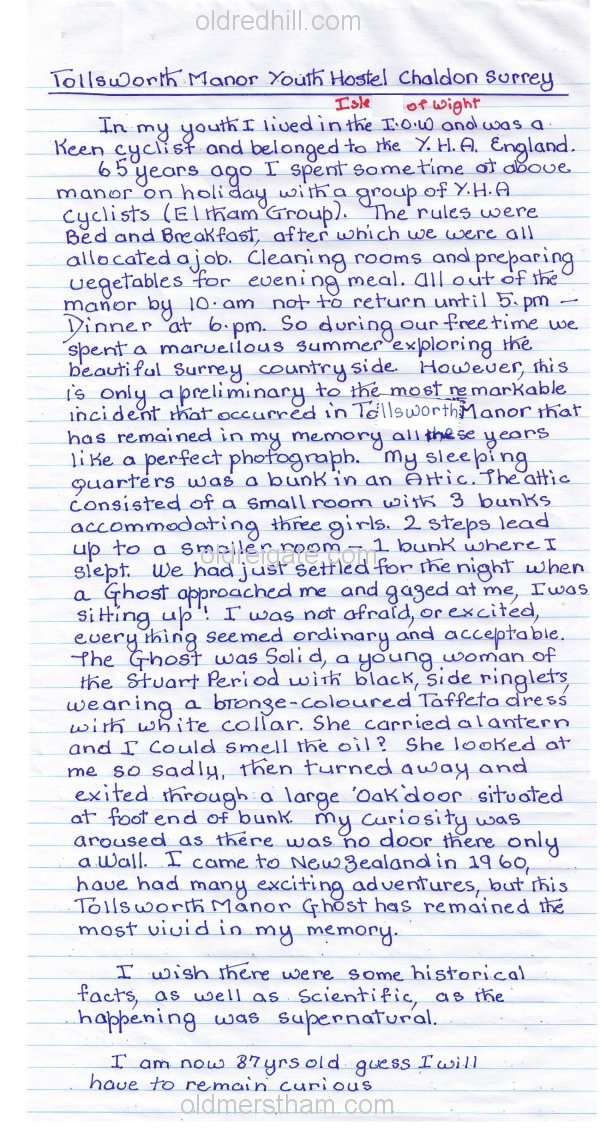 oldredhill.com
Tollsworth Manor Youth Hostel Chaldon Surrey
Isle of Wight
In my youth I lived in the I.O.W and was a
keen cyclist and belonged to the Y.H.A. England.
65 years ago I spent some time at above
manor on holiday with a group of Y.H.A
cyclists (Eltham Group). The rules were
Bed and Breakfast, after which we were all
allocated a job. Cleaning rooms and preparing
vegetables for evening meal. All out of the
manor by 10.am not to return until 5.pm —
Dinner at 6.pm. So during our free time we
spent a marvellous summer exploring the
beautiful Surrey countryside. However, this
is only a preliminary to the most remarkable
incident that occurred in Tollsworth Manor that
has remained in my memory all these years
like a perfect photograph. My sleeping
quarters was a bunk in an Attic. The attic
consisted of a small room with 3 bunks
accommodating three girls. 2 steps lead
up to a smaller room — 1 bunk where I
oldreigate.com
slept. We had just settled for the night when
a Ghost approached me and gazed at me, I was
sitting up! I was not afraid, or excited,
everything seemed ordinary and acceptable.
The Ghost was Solid, a young woman of
the Stuart Period with black, side ringlets,
wearing a bronze-coloured Taffeta dress
with white collar. She carried a lantern
and I could smell the oil? She looked at
me so sadly, then turned away and
exited through a large 'Oak' door situated
at foot end of bunk. My curiosity was
aroused as there was no door there only
a wall. I came to New Zealand in 1960,
have had many exciting adventures, but this
Tollsworth Manor Ghost has remained the
most vivid in my memory.
I wish there were some historical
facts, as well as Scientific, as the
happening was supernatural.
I am now 87yrs old guess I will
have to remain curious
oldmerstham.com